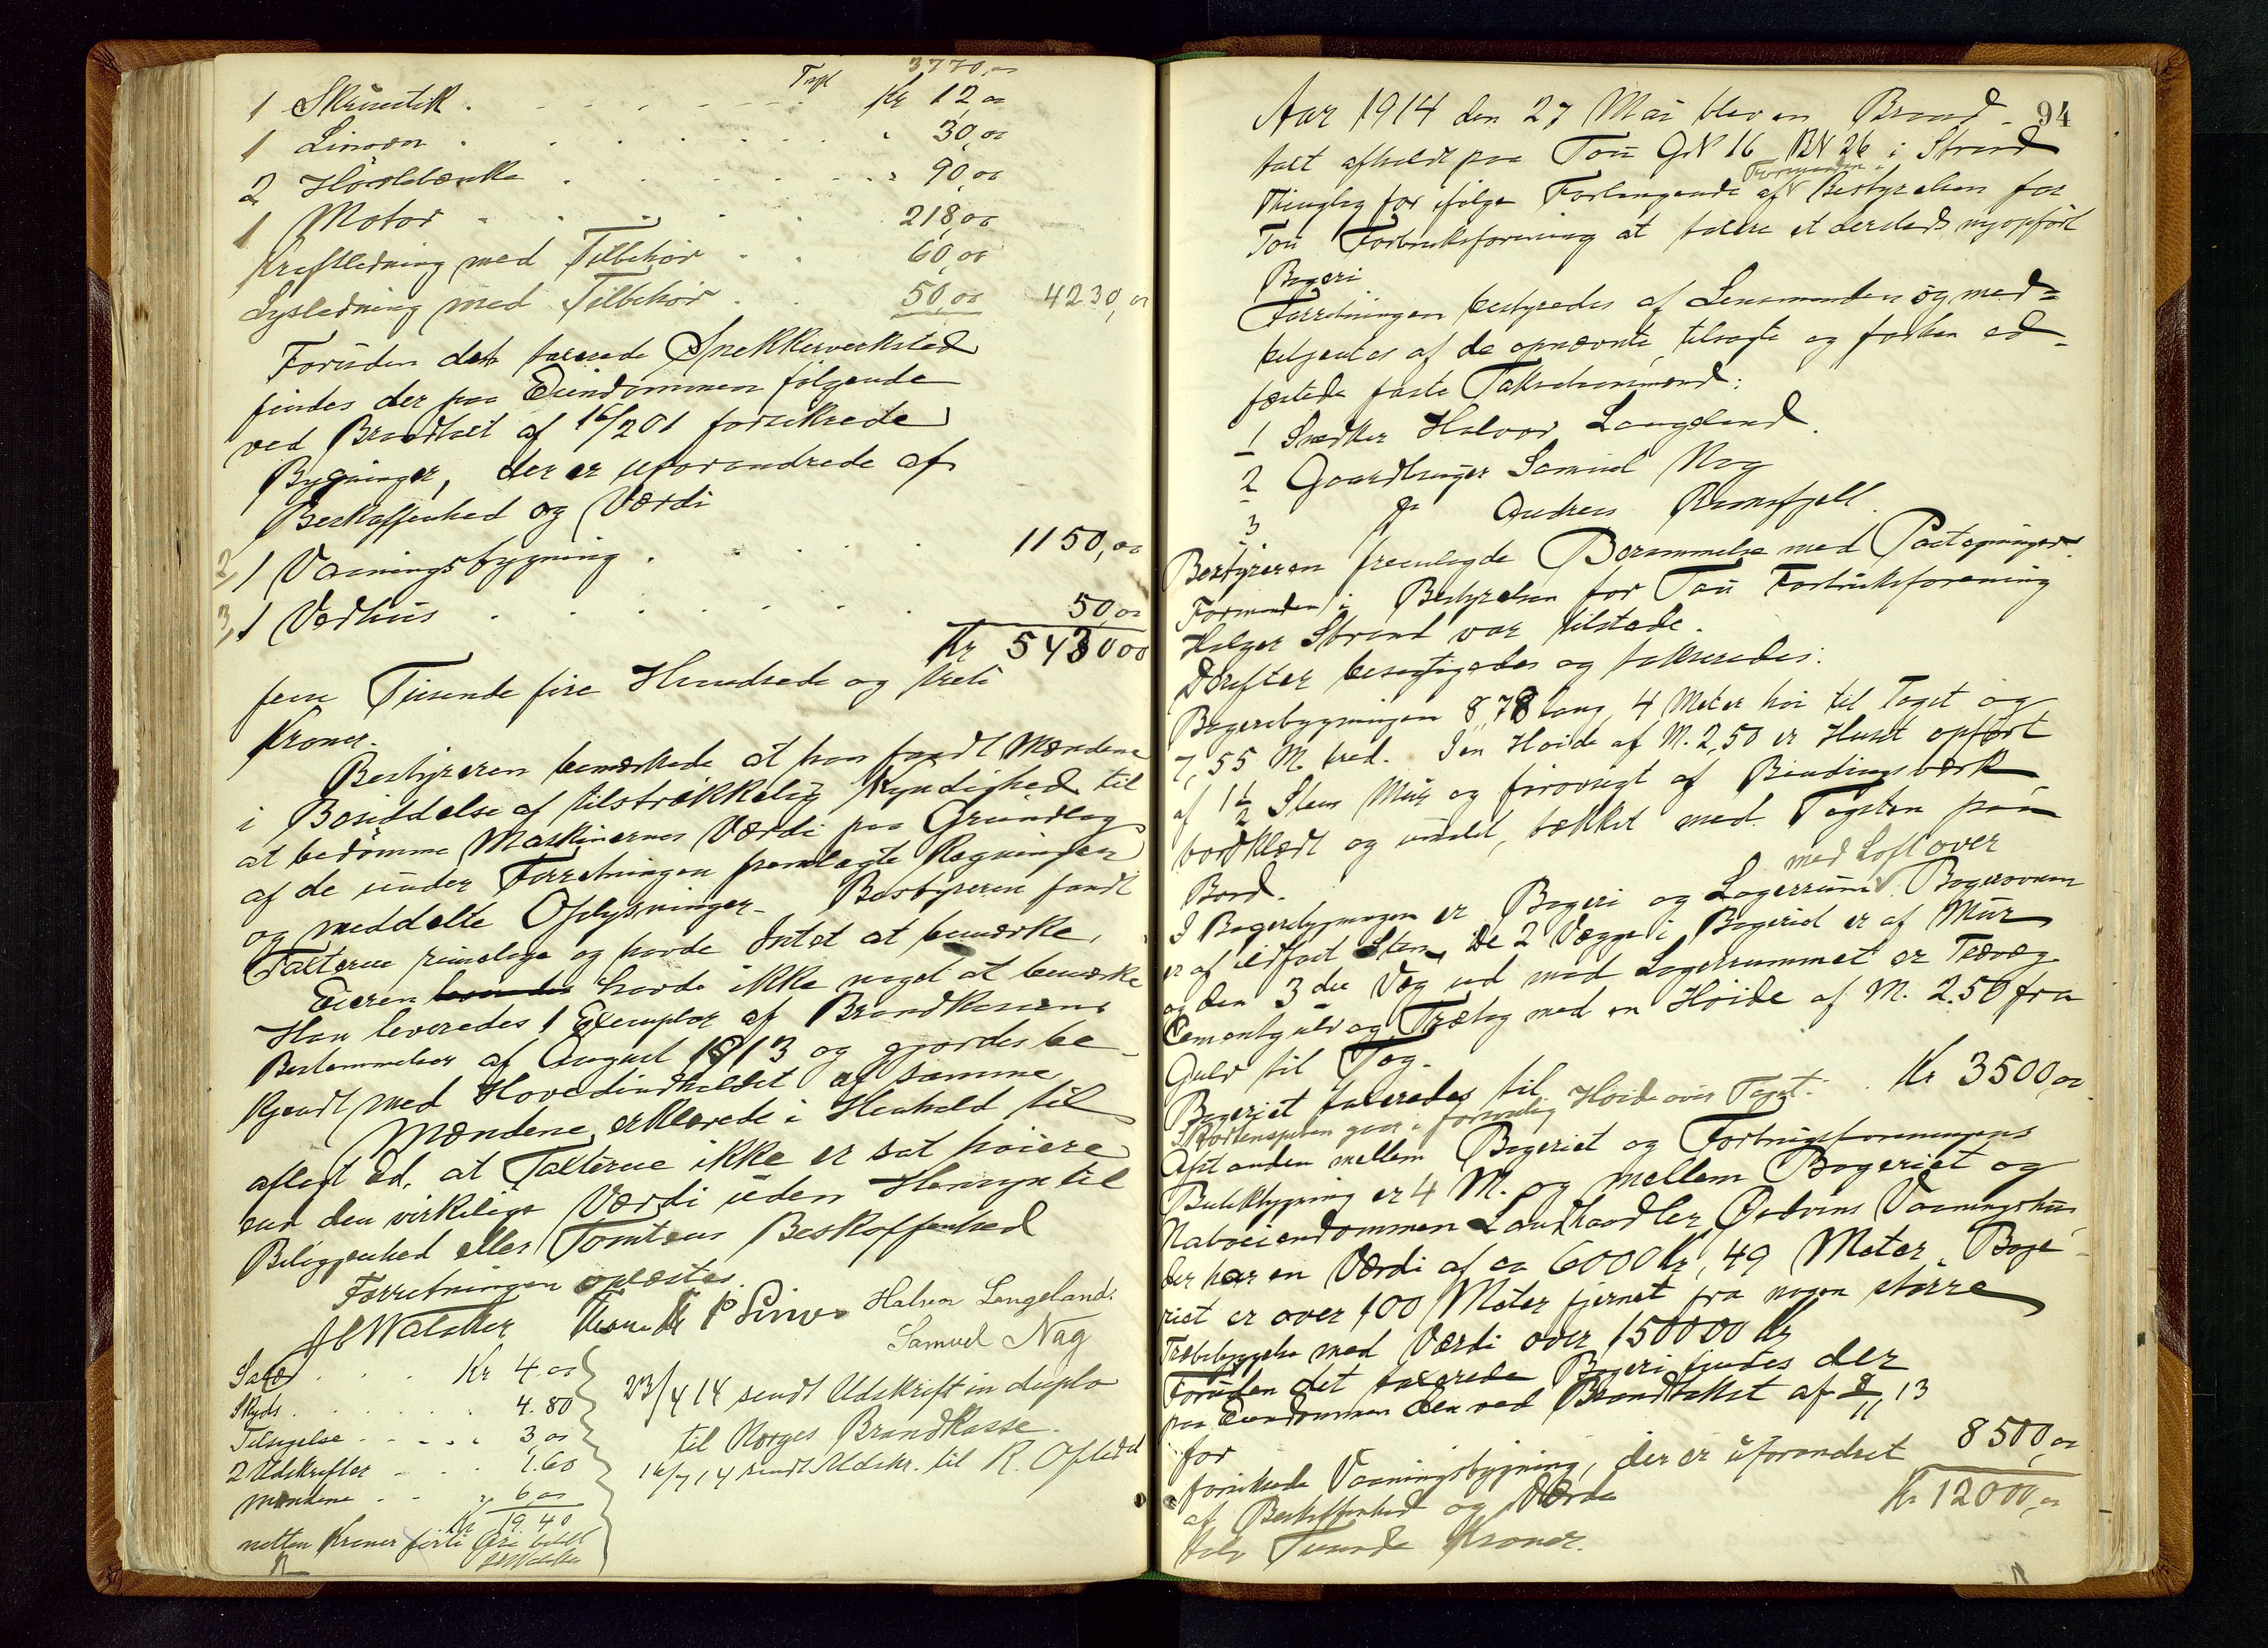 Trpt 3770,00
1 Skruestik Kr 12,00
1 30,00
2 Høvlebænke 90,00
1 Motor 218,00
Kraftledning med Tilbehør 60,00
Lysledning med Tilbehør 50,00 4230,00
Foruden det taxerede Snekkerverksted
findes der paa Eiendommen følgende
ved Brandtaxt af 16/2 01 forsikrede
Bygninger, der er uforandrede af
Beskaffenhed og Værdi
2, 1 Vaaningsbygning 1150,00
3, 1 Vedhus 50,00
Kr 5430,00
fem Tusende fire Hundrede og treti
Kroner.
Bestyreren bemærkede at han fandt Mændene
i Besiddelse af tilstrækkelig Kyndighed til
at bedømme Maskinernes Værdi paa Grundlag
af de under Forretningen fremlagte Regninger
og meddelte Oplysninger. Bestyreren fandt
Taxterne rimelige og havde Intet at bemærke.
Eieren havde ikke noget at bemærke
Han leveredes 1 Exemplar af Brandkassens
Bestemmelser af August 1913 og gjordes be-
kjendt med Hovedindholdet af samme
Mændene erklærede i Henhold til
aflagt Ed, at Taxterne ikke er sat høiere
end den virkelige Værdi uden Hensyn til
Beliggenhed eller Tomtens Beskaffenhed
Forretningen oplæstes.
Halvor Langeland.
Samuel Nag
Kr 4.00
Skyds 4.80
Tilsigelse 3,00
2 Udskrifter 1.60
Mændene 6,00
Kr 19 40
nitten Kroner firti Øre betalt
23/4 14 sendt Udskrift in duplo
til Norges Brandkasse.
16/7 14 sendt Udskr. til R. Oftedal
94
Aar 1914 den 27 Mai blev en Brand-
taxt afholdt paa Tou GN 16 BN 26 i Strand
Thinglag for ifølge Forlangende af Formanden i Bestyrelsen for
Tou Forbruksforening at taxere et dersteds nyopført
Bageri
Forretningen bestyredes af Lensmanden og med-
betjentes af de opnævnte, tilsagte og forhen ed-
fæstede faste Takstmænd:
1 Snedker Halvor Langeland.
2 Gaardbruger Samuel Nag
3 Andreas
Bestyreren fremlagde Berammelse med Paategninger.
Formanden i Bestyrelsen for Tou Forbruksforening
Holger Strand var tilstede.
Derefter besigtigedes og takseredes:
Bageribygningen 8,78 lang, 4 Meter høi til Taget og
7,55 M. bred. I en Høide af M. 2,50 er Huset opført
af 1½ Stens Mur og forøvrigt af Bindingsværk
bordklædt og malet, tækket med Tagsten paa
Bord.
I Bageribygningen er Bageri og Lagerrum med Loft over Bagerovnen
er af ildfast Sten, De 2 Vægge i Bageriet er af Mur
og den 3die Væg ud mod Lagerrummet er Trævæg.
Cementgulv og Trætag med en Høide af M. 2.50 fra
Gulv til Tag.
Bageriet taxeredes til Kr 3500,00
Skorstenspiben gaar i forsvarlig Høide over Taget.
Afstanden mellem Bageriet og Forbrugsforeningens
Butikbygning er 4 M. og mellem Bageriet og
Naboeiendommen Landhandler Vaaningshus,
der har en Værdi af ca 6000 Kr, 49 Meter. Bage-
riet er over 100 Meter fjernet fra nogen større
Træbebyggelse med Værdi over 150000 Kr
Foruden det taxerede Bageri findes der
paa Eiendommen den ved Brandtakst af 8/11 13
for
forsikrede Vaaningsbygning, der er uforandret 8500,00
af Beskaffenhed og Værdi Kr 12000,00
tolv Tusende Kroner.